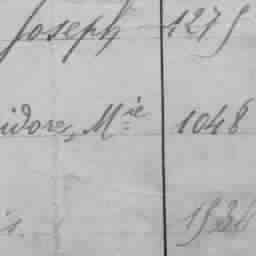 Joseph 1275
idore, Mie 1048
is.